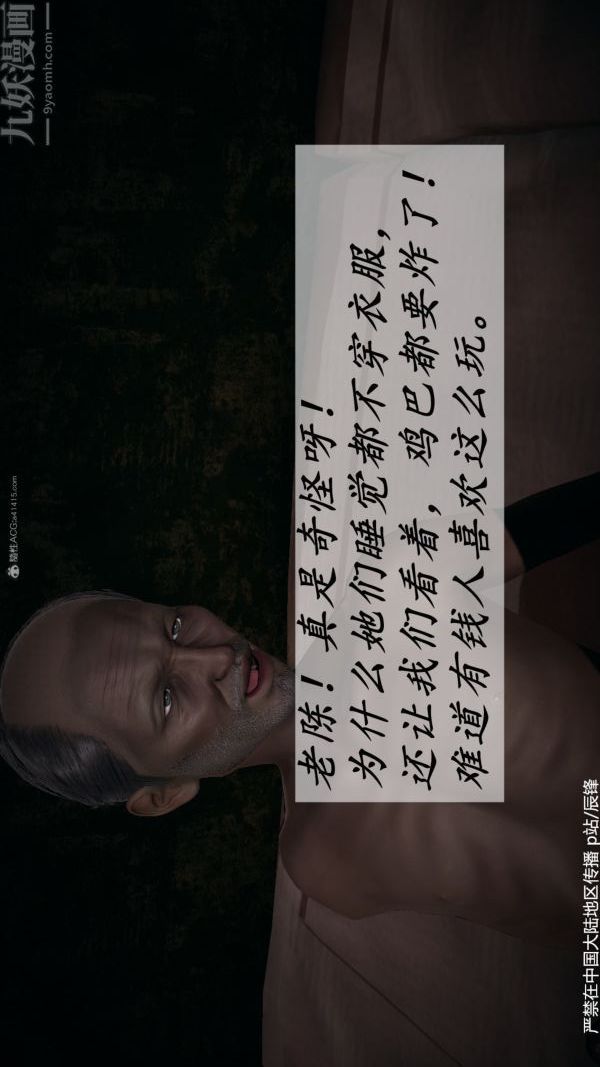 九妖漫画
9yaomh.com
老陈！真是奇怪呀！
为什么她们睡觉都不穿衣服，
还让我们看着，鸡巴都要炸了！
难道有钱人喜欢这么玩。
严禁在中国大陆地区传播 p站/辰锋